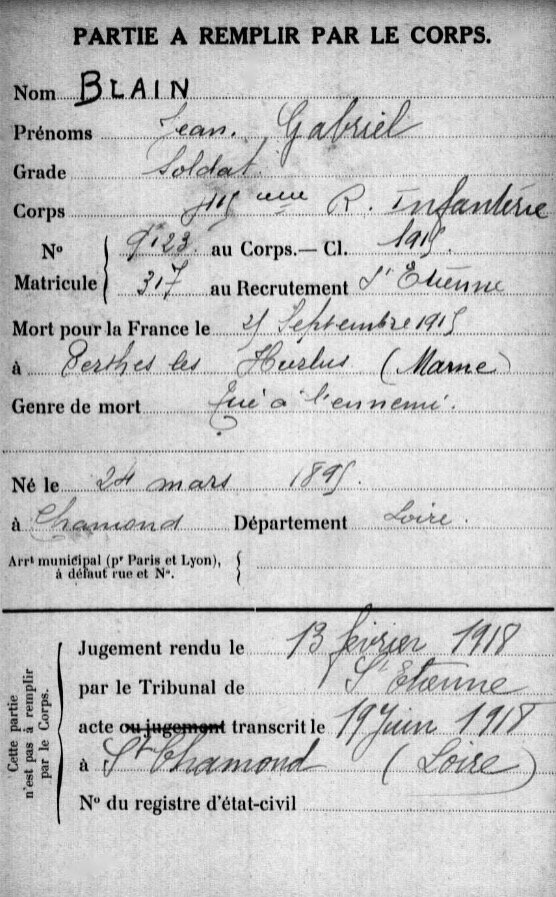 PARTIE A REMPLIR PAR LE CORPS.
Nom BLAIN
Prénoms Jean. Gabriel
Grade Soldat.
Corps eme R. Infanterie
N° Matricule
9123. au Corps.— Cl. 1915.
317 au Recrutement St Etienne
Mort pour la France le 25 Septembre 1915
à Perthes les Hurlus (Marne)
Genre de mort Tué à l'ennemi.
Né le 24 mars 1895.
à Chamond Département Loire.
Arrt municipal (pr Paris et Lyon),
à défaut rue et N°.
Cette partie
n'est pas à remplir
par le Corps.
Jugement rendu le 13 février 1918
par le Tribunal de St Etienne
acte ou jugement transcrit le 19 Juin 1918
à St Chamond (Loire)
N° du registre d'état-civil